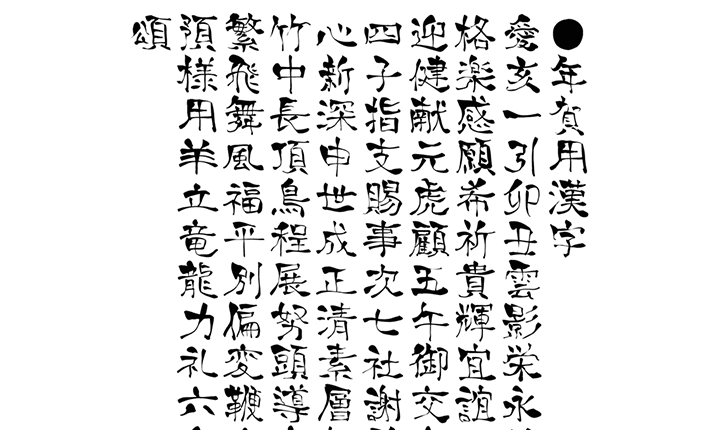 ●年賀用漢字
愛亥一引卯丑雲影栄永
格楽感願希祈貴輝宜誼
迎健献元虎顧五午御交
四子指支賜事次七社謝
心新深申世成正清素層
竹中長頂鳥程展努頭導
繁飛舞風福平別偏変鞭
預様用羊立竜龍力礼六
頌